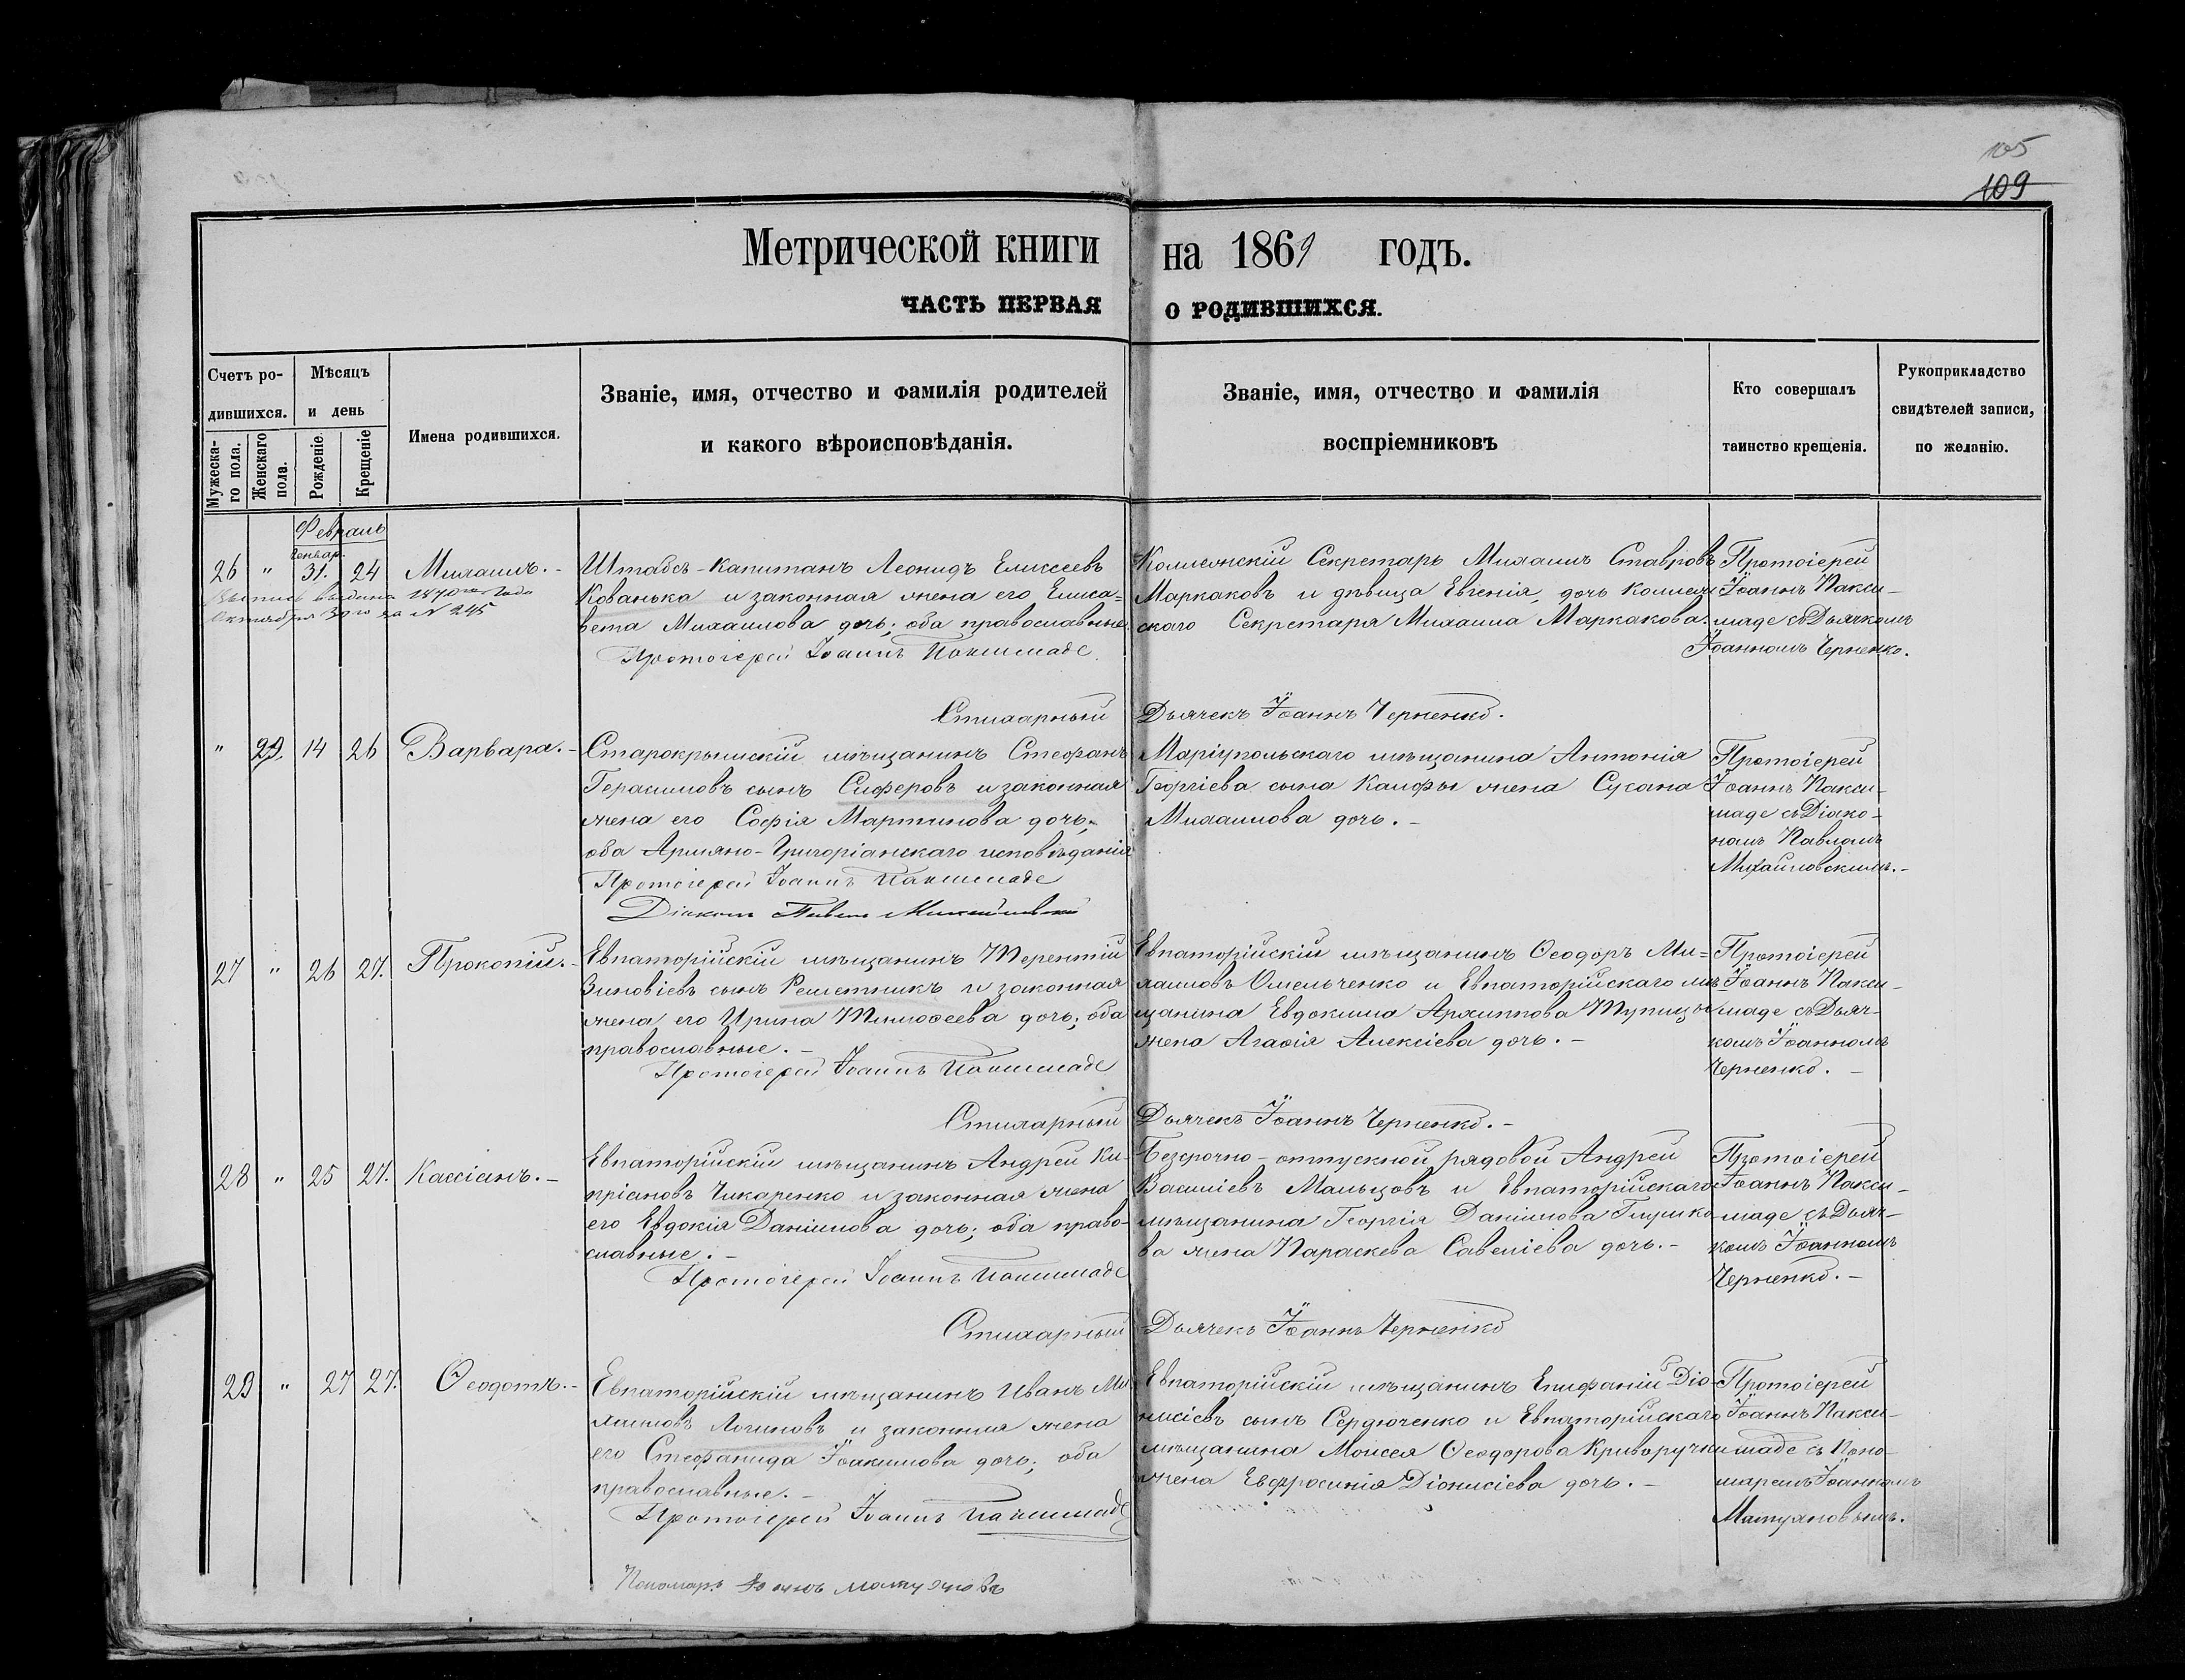 105
109
Метрической книги на 1869 годъ.
ЧАСТЬ ПЕРВАЯ О РОДИВШИХСЯ.
Счетъ родившихся.
Мужескаго пола.
Женскаго пола.
Мѣсяцъ и день
Рожденіе.
Крещеніе
Имена родившихся.
Званіе, имя, отчество и фамилія родителей
и какого вѣроисповѣданія.
Званіе, имя, отчество и фамилія
воспріемниковъ
Кто совершалъ
таинство крещенія.
Рукоприкладство
свидѣтелей записи,
по желанію.
Февраль
Генвар.
26 " 31. 24 Михаилъ.-
Выпись выдана 1870го года
Октября 30го за N 245
Штабсъ-Капитанъ Леонидъ Елисеевъ
Кованька и законная жена его Елиса=
вета Михаилова дочь; оба православные.
Протоіерей Іоаннъ Пакшемаде
Коллежскій Секретарь Михаилъ Ставровъ
Маркаковъ и дѣвица Евгенія, дочь Коллеж
скаго Секретаря Михаила Маркакова.
Протоіерей
Іоаннъ Пакши-
маде съ Дьячкомъ
Іоанномъ Черненко.
Стихарный Дьячекъ Іоаннъ Черненко.
" 29. 14 26 Варвара.-
Старокрымскій мѣщанинъ Стефанъ
Герасимовъ сынъ Сиферовъ и законная
жена его Софія Мартинова дочь,
оба Армяно-Григоріанскаго исповѣданія
Протоіерей Іоаннъ Пакшемаде
Діаконъ Павелъ Михайловскій
Маріупольскаго мѣщанина Антонія
Георгіева сына Калфы жена Сусана
Михаилова дочь.-
Протоіерей
Іоаннъ Пакши-
маде съ Діако-
номъ Павломъ
Михайловскимъ.-
27 " 26 27. Прокопій.-
Евпаторійскій мѣщанинъ Терентій
Зиновіевъ сынъ Решетникъ и законная
жена его Ирина Тимофеева дочь; оба
православные.-
Протоіерей Іоаннъ Пакшемаде
Евпаторійскій мѣщанинъ Ѳеодоръ Ми=
хаиловъ Омельченко и Евпаторійскаго мѣ
щанина Евдокима Архиппова Тупицы
жена Агафія Алексіева дочь.-
Протоіерей
Іоаннъ Пакши-
маде съ Дьяч-
комъ Іоанномъ
Черненко.-
Стихарный Дьячекъ Іоаннъ Черненко.-
28 " 25 27. Кассіанъ.-
Евпаторійскій мѣщанинъ Андрей Ки-
пріановъ Чикаренко и законная жена
его Евдокія Даніилова дочь; оба право-
славные.-
Протоіерей Іоаннъ Пакшемаде
Безсрочно-отпускной рядовой Андрей
Василіевъ Мальцовъ и Евпаторійскаго
мѣщанина Георгія Даніилова Глушко-
ва жена Параскева Савеліева дочь.-
Протоіерей
Іоаннъ Пакши-
маде съ Дьяч-
комъ Іоанномъ
Черненко.-
Стихарный Дьячекъ Іоаннъ Черненко
29 " 27 27. Ѳеодотъ.-
Евпаторійскій мѣщанинъ Иванъ Ми
хаиловъ Логиновъ и законная жена
его Стефанида Іоакимова дочь; оба
православные.-
Протоіерей Іоаннъ Пакшемаде
Евпаторійскій мѣщанинъ Епифаній Діо-
нисіевъ сынъ Сердюченко и Евпаторійскаго
мѣщанина Моисея Ѳеодорова Криворучки
жена Евфросинія Діонисіева дочь.-
Протоіерей
Іоаннъ Пакши-
маде съ Поно-
маремъ Іоанномъ
Матуяновымъ.
Пономарь Іоаннъ Матуяновъ